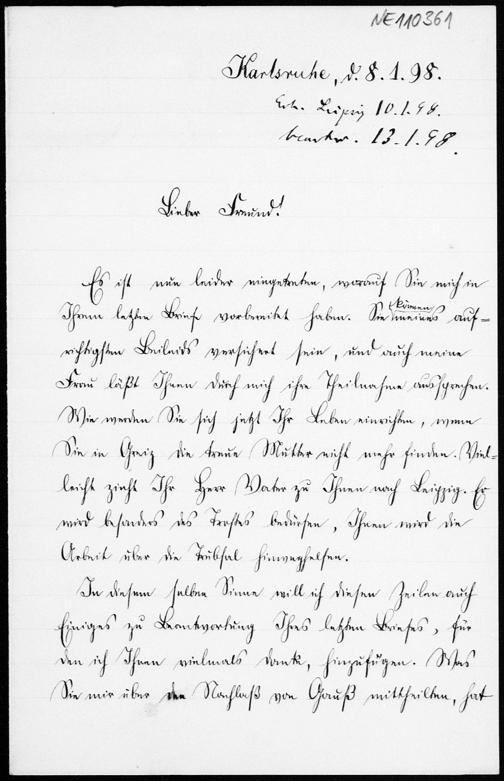 NE110361
Karlsruhe, d. 8. 1. 98.
Erh. Leipzig 10.1.98.
beantw. 13.1.98.
Lieber Freund!
Es ist nun leider eingetreten, worauf Sie mich in
Ihrem letzten Briefe vorbereitet haben. Sie können meines auf-
richtigsten Beileids versichert sein, und auch meine
Frau läßt Ihnen durch mich ihre Theilnahme aussprechen.
Wie werden Sie sich jetzt Ihr Leben einrichten, wenn
Sie in Greiz die treue Mutter nicht mehr finden. Viel-
leicht zieht Ihr Herr Vater zu Ihnen nach Leipzig. Er
wird besonders des Trostes bedürfen, Ihnen wird die
Arbeit über die Trübsal hinweghelfen.
In diesem selben Sinne will ich diesen Zeilen auch
Einiges zu Beantwortung Ihres letzten Briefes, für
den ich Ihnen vielmals dank, hinzufügen. Was
Sie mir über den Nachlaß von Gauß mittheilten, hat